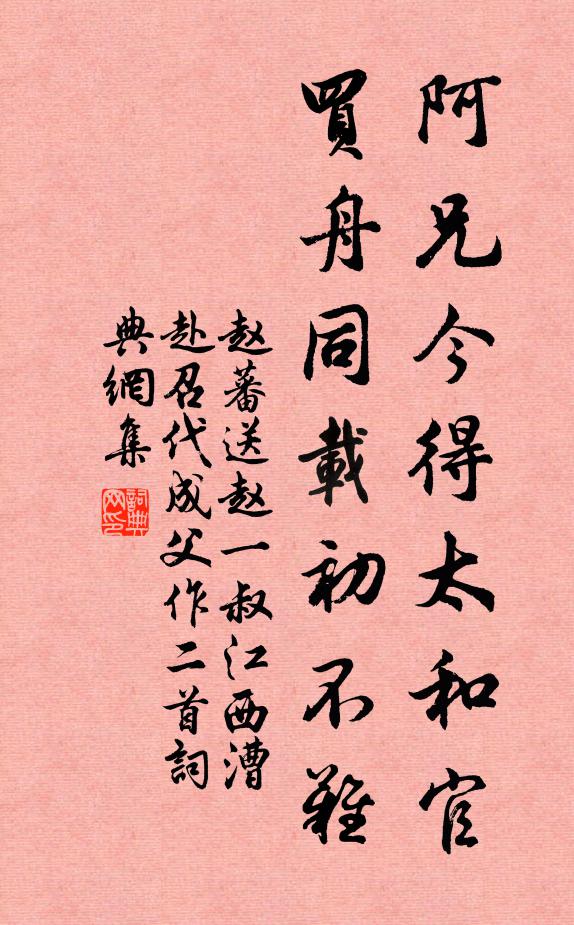 阿兄今得太和官
買舟同載初不難
赵蕃送赵一叔江西漕
赴召代成父作二首詞
典網集
詞典网印